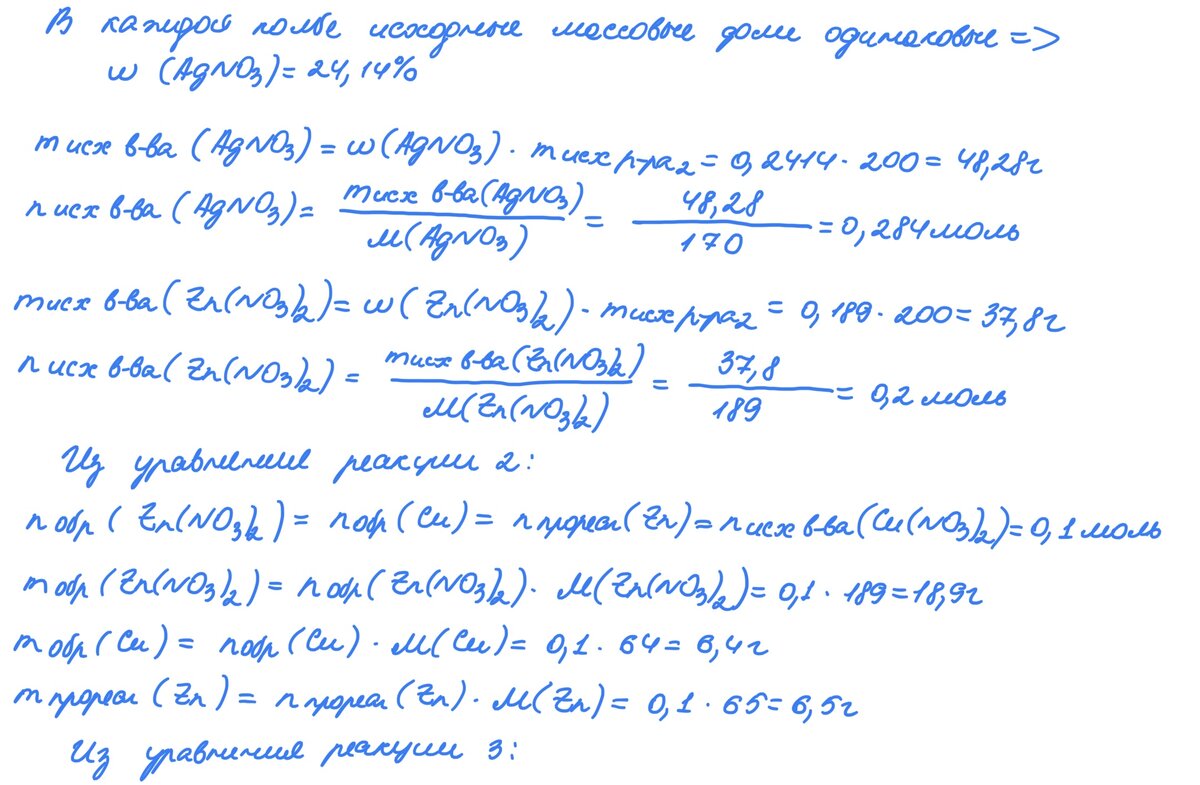 В каждой колбе исходные массовые доли одинаковые =>
w (AgNO3) = 24,14%
mисх в-ва (AgNO3) = w(AgNO3) · mисх р-ра2 = 0,2414 · 200 = 48,28г
nисх в-ва (AgNO3) = mисх в-ва(AgNO3) / M(AgNO3) = 48,28 / 170 = 0,284 моль
mисх в-ва (Zn(NO3)2) = w(Zn(NO3)2) · mисх р-ра2 = 0,189 · 200 = 37,8г
nисх в-ва (Zn(NO3)2) = mисх в-ва(Zn(NO3)2) / M(Zn(NO3)2) = 37,8 / 189 = 0,2 моль
Из уравнения реакции 2:
nобр (Zn(NO3)2) = nобр (Cu) = nпрореаг (Zn) = nисх в-ва (Cu(NO3)2) = 0,1 моль
mобр (Zn(NO3)2) = nобр (Zn(NO3)2) · M(Zn(NO3)2) = 0,1 · 189 = 18,9г
mобр (Cu) = nобр (Cu) · M(Cu) = 0,1 · 64 = 6,4г
mпрореаг (Zn) = nпрореаг (Zn) · M(Zn) = 0,1 · 65 = 6,5г
Из уравнения реакции 3: